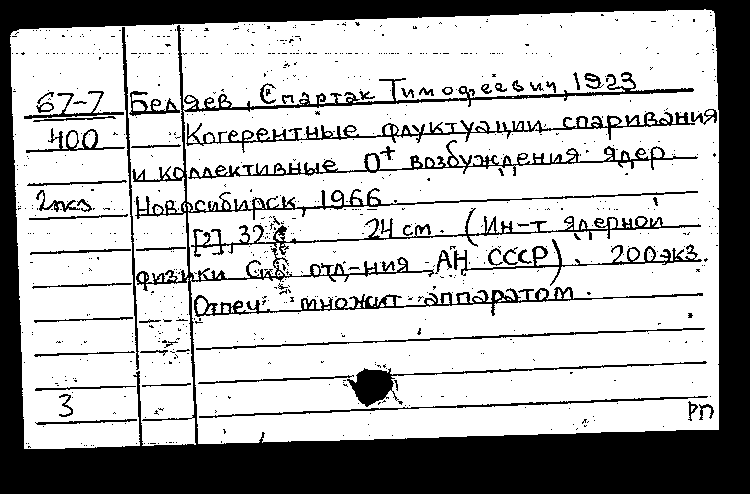 67-7 Беляев, Спартак Тимофеевич, 1923
400 Когерентные флуктуации спаривания
и коллективные 0⁺ возбуждения ядер.
2экз Новосибирск, 1966.
[2], 32 с. 24 см. (Ин-т ядерной
физики Сиб. отд-ния АН СССР). 200 экз.
Отпеч. множит. аппаратом.
3
РП